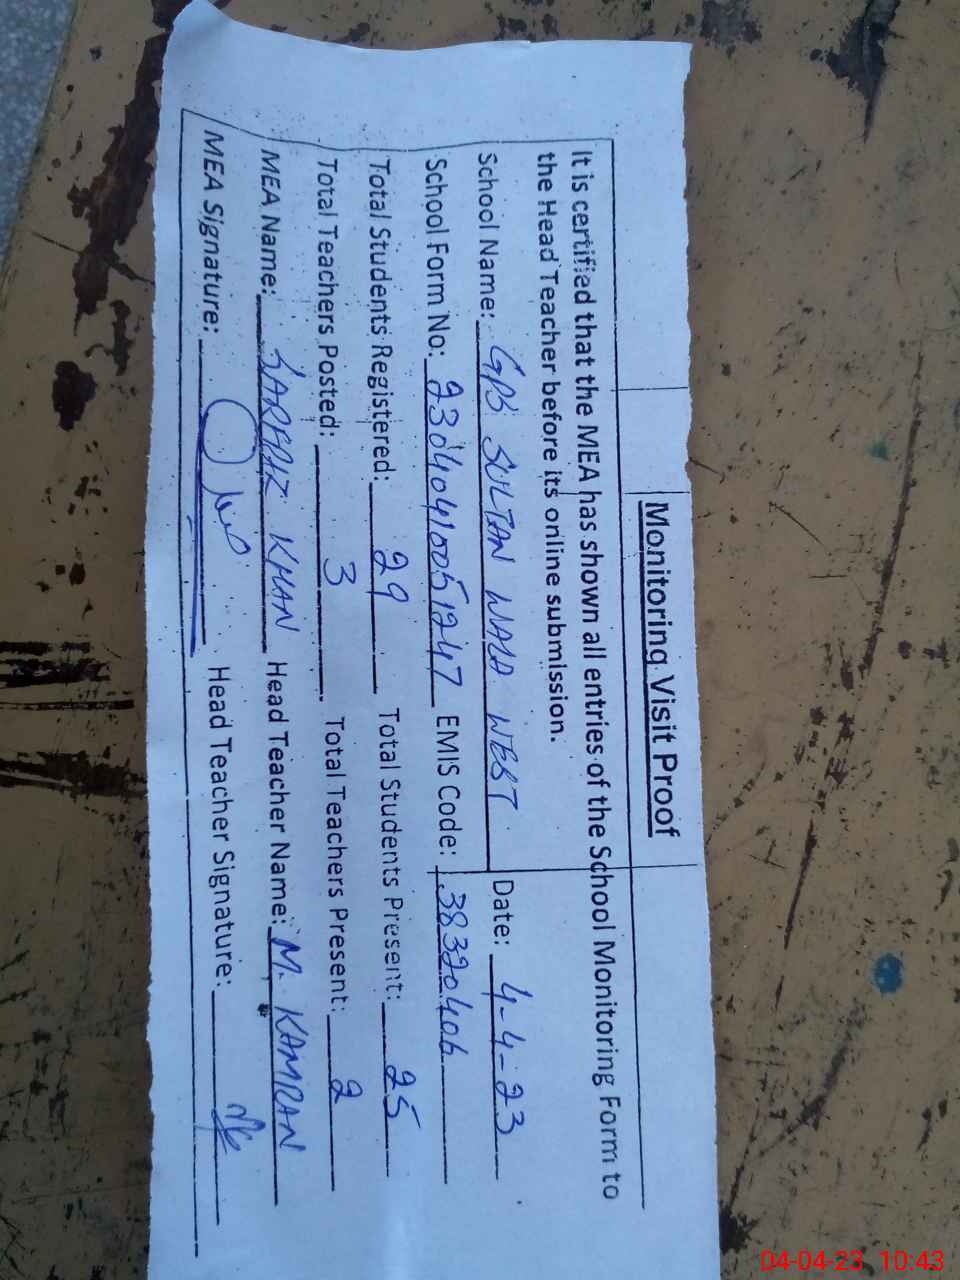 Monitoring Visit Proof
It is certified that the MEA has shown all entries of the School Monitoring Form to
the Head Teacher before its online submission.
School Name: GPS SULTAN WALA WEST Date: 4-4-23
School Form No: 23040410051247 EMIS Code: 38320406
Total Students Registered: 29 Total Students Present: 25
Total Teachers Posted: 3 Total Teachers Present: 2
MEA Name: SARFRAZ KHAN Head Teacher Name: M. KAMRAN
MEA Signature: Head Teacher Signature:
04-04-23 10:43